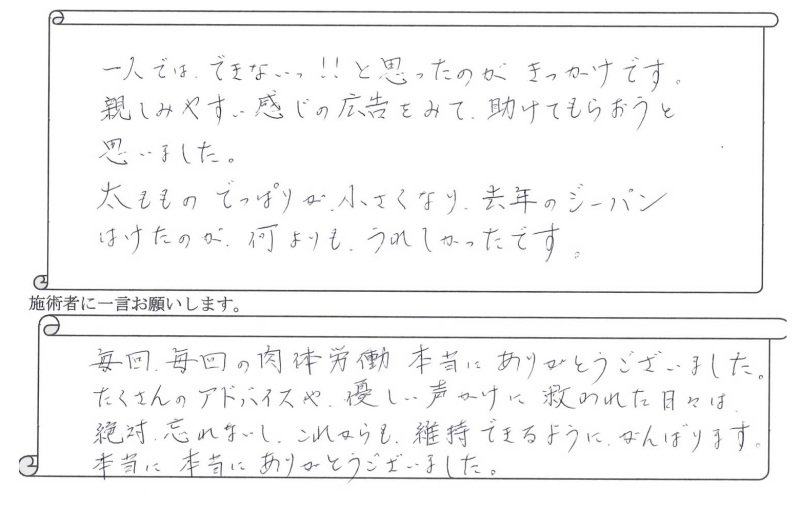 一人では、できないっ!!と思ったのが きっかけです。
親しみやすい感じの広告をみて、助けてもらおうと
思いました。
太ももの でっぱりが、小さくなり、去年のジーパン
はけたのが、何よりも、うれしかったです。
施術者に一言お願いします。
毎回、毎回の肉体労働 本当に ありがとうございました。
たくさんのアドバイスや、優しい声かけに 救われた日々は、
絶対、忘れないし、これからも、維持できるように、がんばります。
本当に 本当に ありがとうございました。